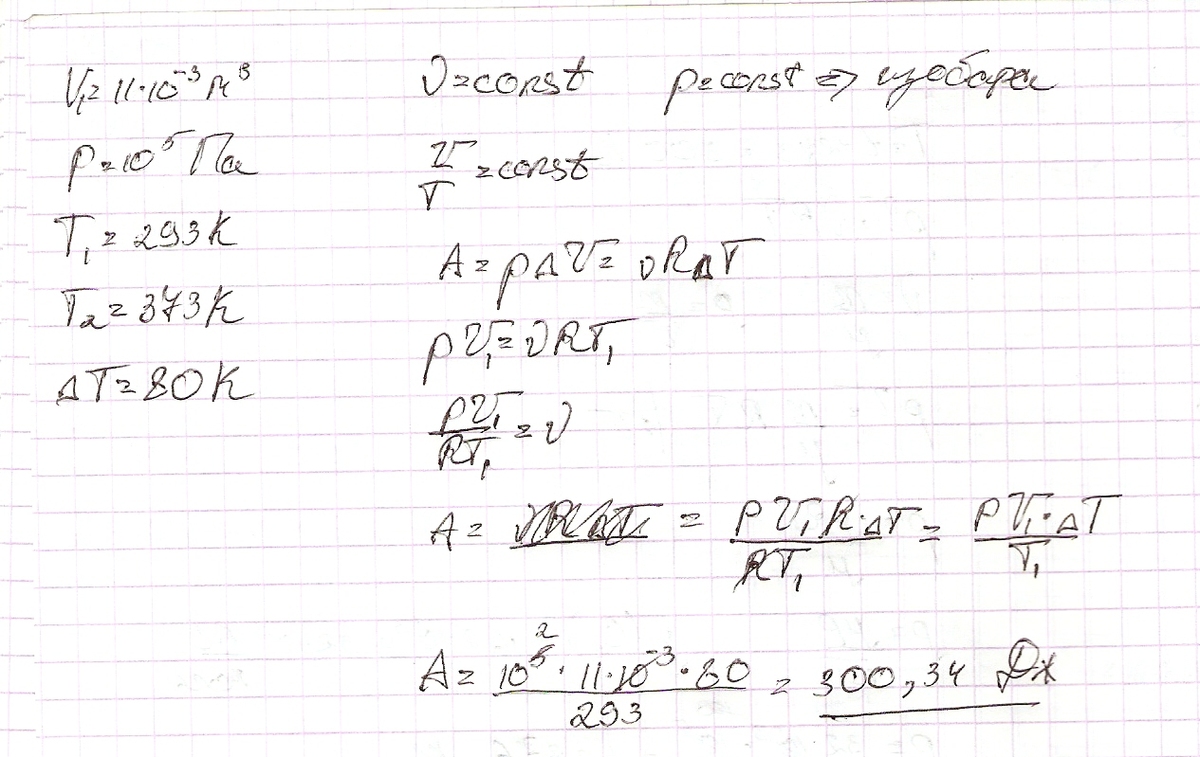 V₁=11·10⁻³ м³
p=10⁵ Па
T₁=293K
T₂=373K
ΔT=80K
ν=const p=const => изобара
V/T=const
A=pΔV=νRΔT
pV₁=νRT₁
pV₁/RT₁=ν
A= = pV₁R·ΔT/RT₁ = pV₁·ΔT/T₁
A= 10⁵ 2 · 11·10⁻³ · 80/293 = 300,34 Дж